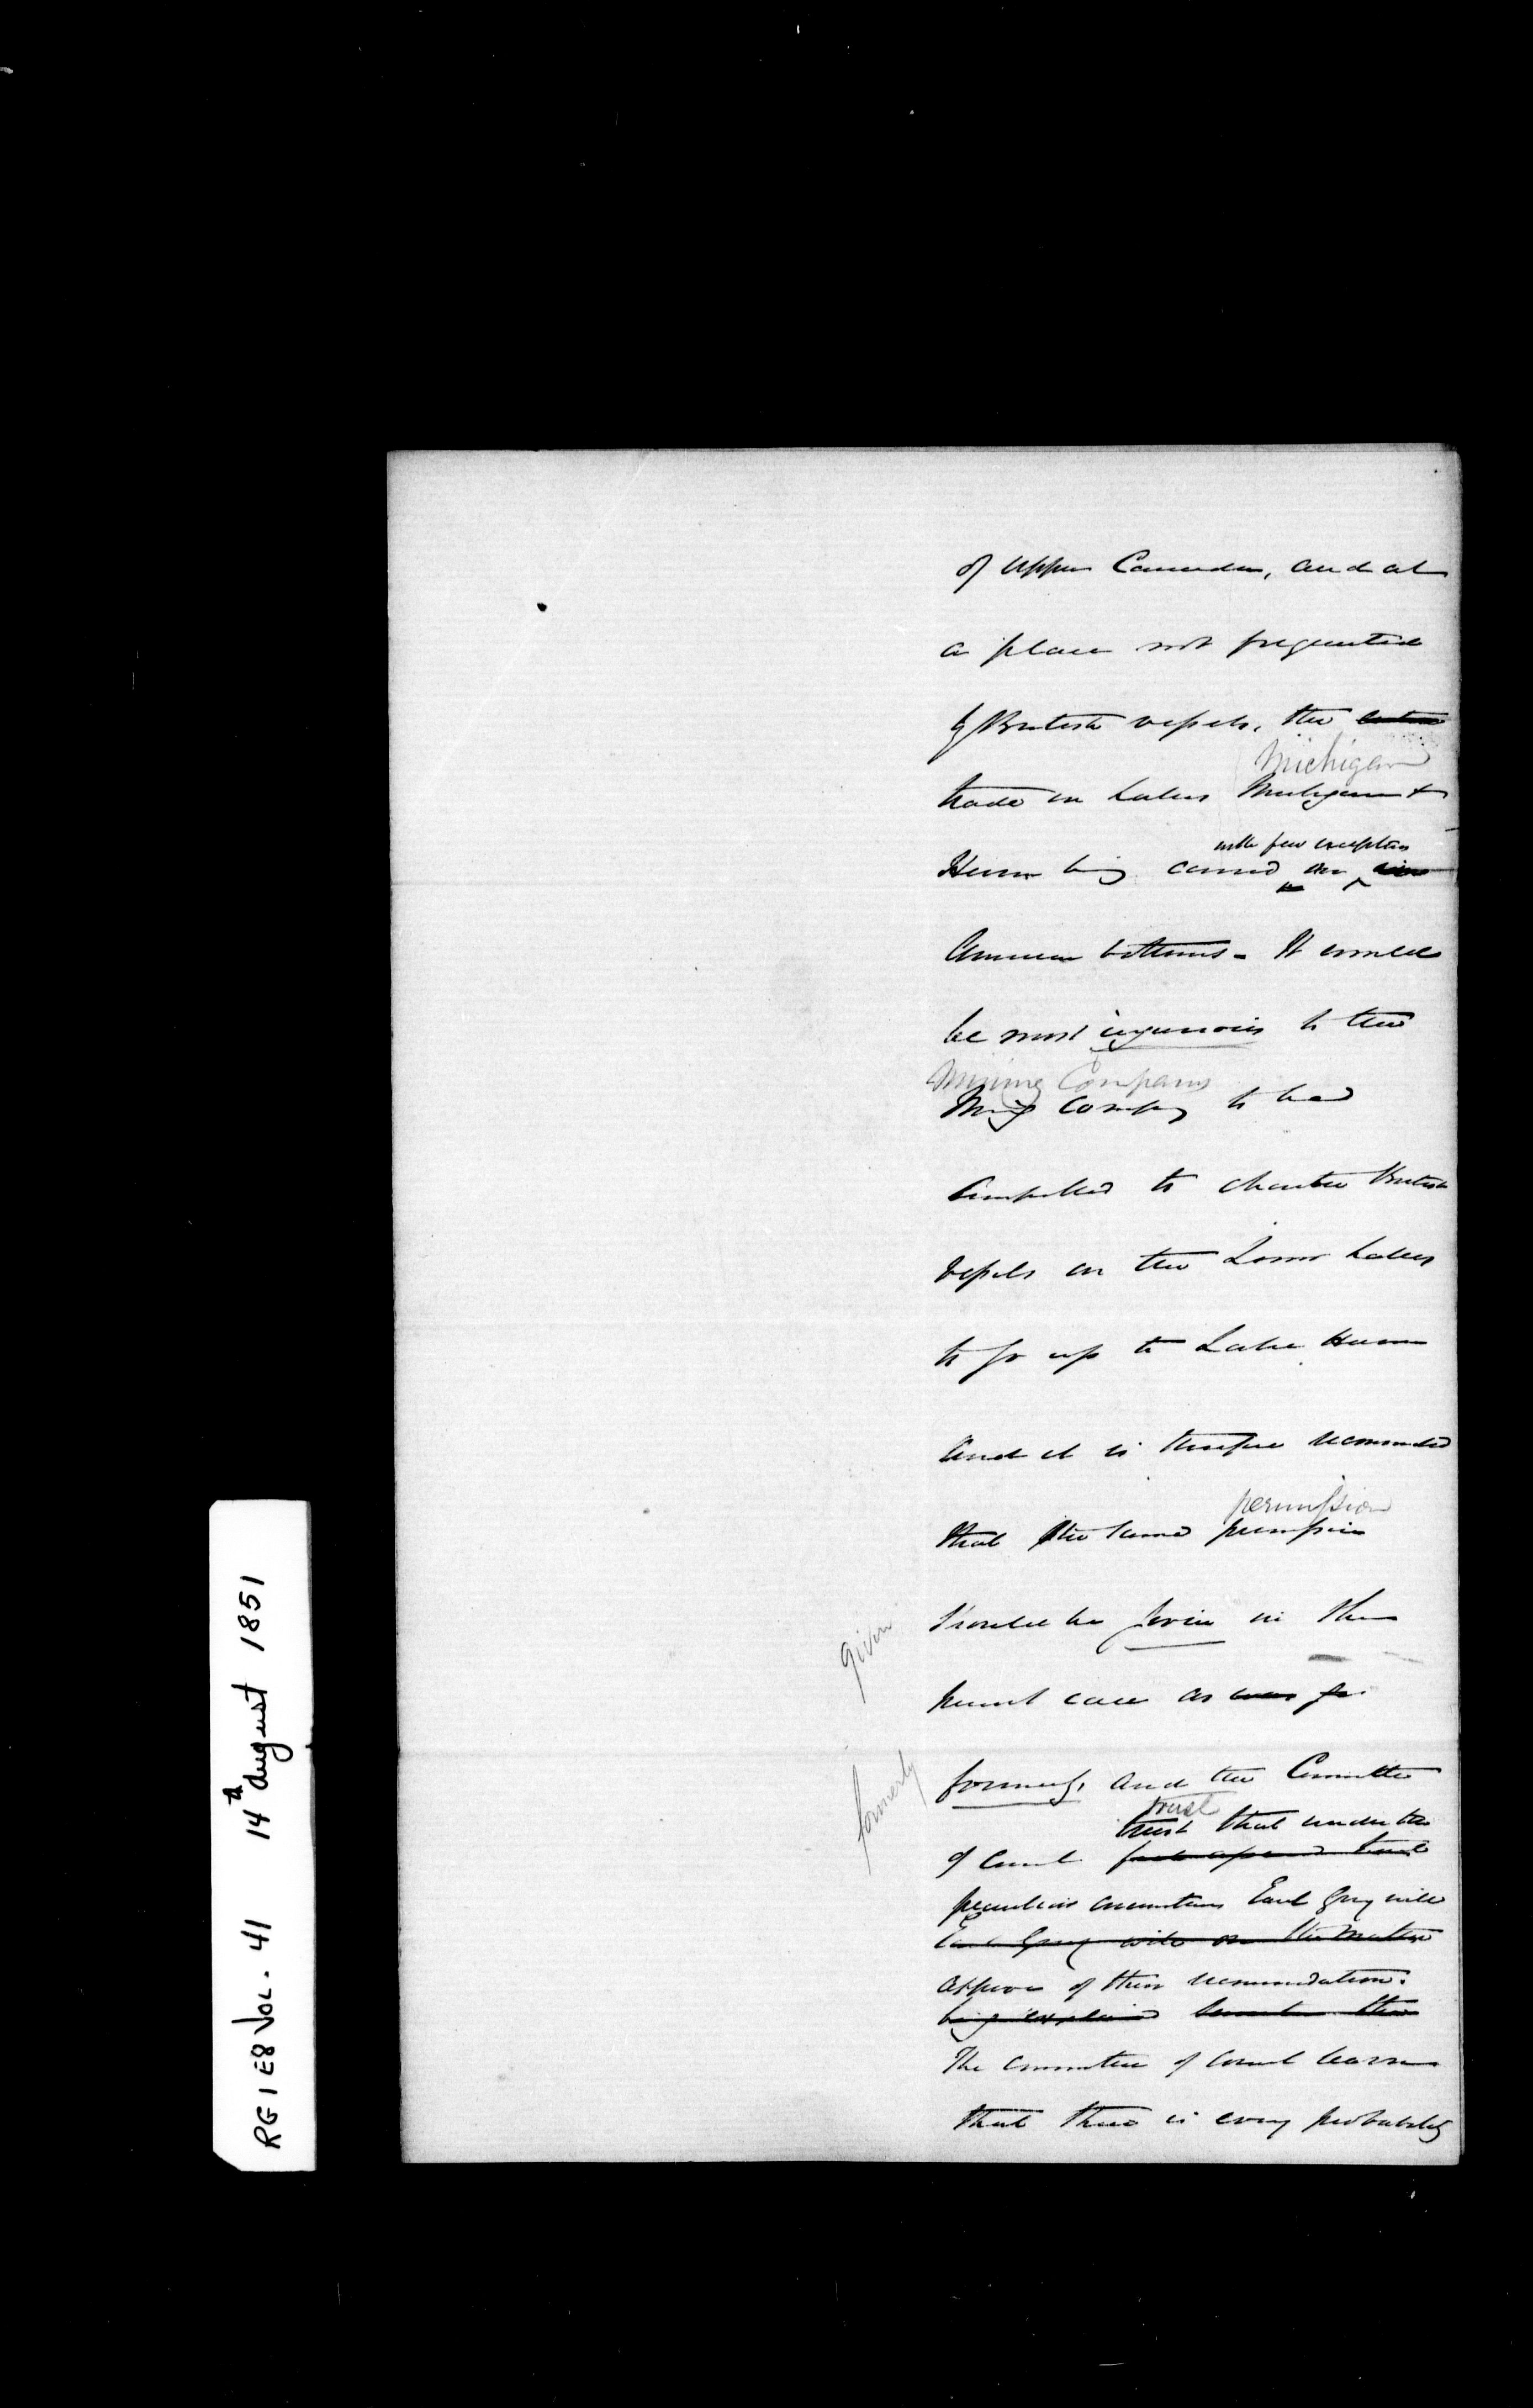 of Upper Canada, and at
a place not frequented
by British vessels, the entire
Michigan
trade on Lakes Michigan &
with few exceptions
Huron being carried on in
American bottoms - It would
be most injurious to the
Mining Company
Ming Company to be
compelled to charter British
vessels on the Lower Lakes
to go up to Lake Huron
and it is therefore recommended
permission
that the same permission
given
should be given in the
present case as was
formerly
formerly, and the Committee
trust
trust that under the
of Council
peculiar circumstances Earl Grey will
Earl Grey will on the matter
approve of their recommendation.
being explained
The Committee of Council learn
that there is every probability
RG 1 E8 VOL. 41 14th August 1851